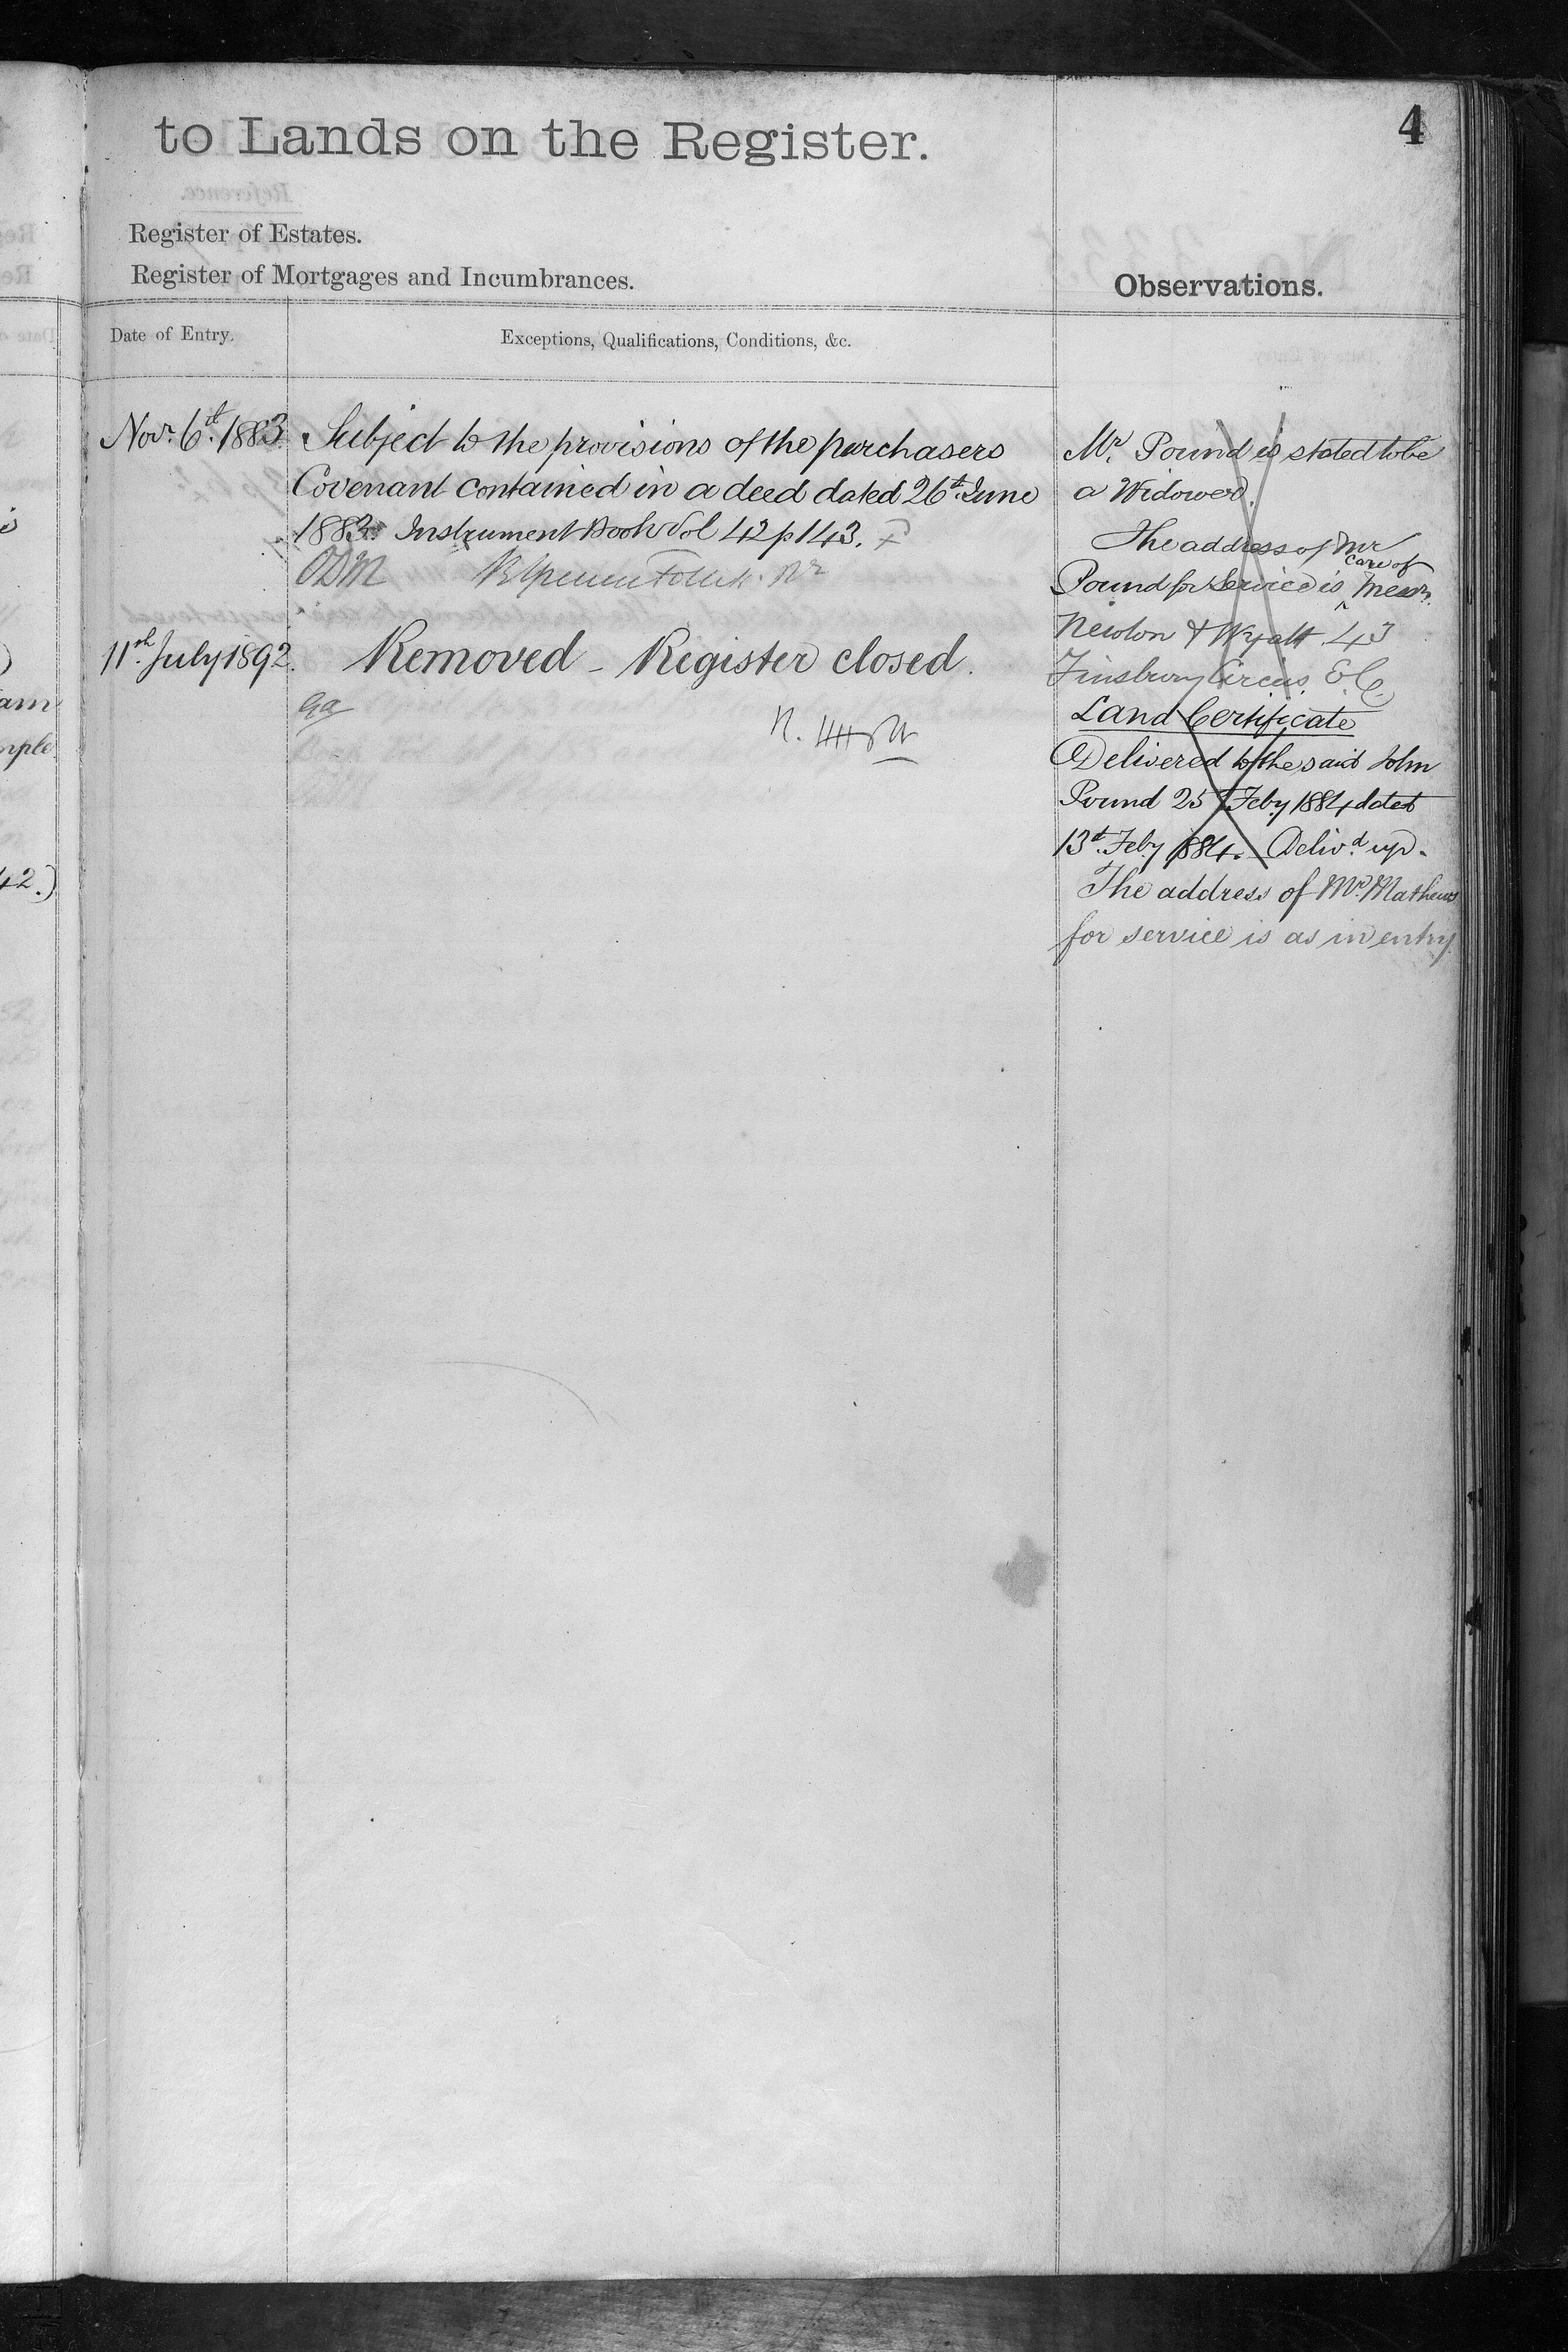 to Lands on the Register.
4
Register of Estates.
Register of Mortgages and Incumbrances.
Observations.
Date of Entry.
Exceptions, Qualifications, Conditions, &c.
Novr. 6th. 1883.
Subject to the provisions of the purchasers
Covenant contained in a deed dated 26th. June
1883. Instrument Book Vol 42 p 143.
ODM
11th. July 1892.
Removed - Register closed.
Mr. Pound is stated to be
a Widower.
The address of Mr
Pound for Service is care of Messrs.
Newton & Wyatt 43
Finsbury Circus E.C.
Land Certificate
Delivered to the said John
Pound 25 Feby 1884 dated
13th. Feby 1884. Delivd. up.
The address of Mr. Mathews
for service is as in entry.
am
mple
42.)